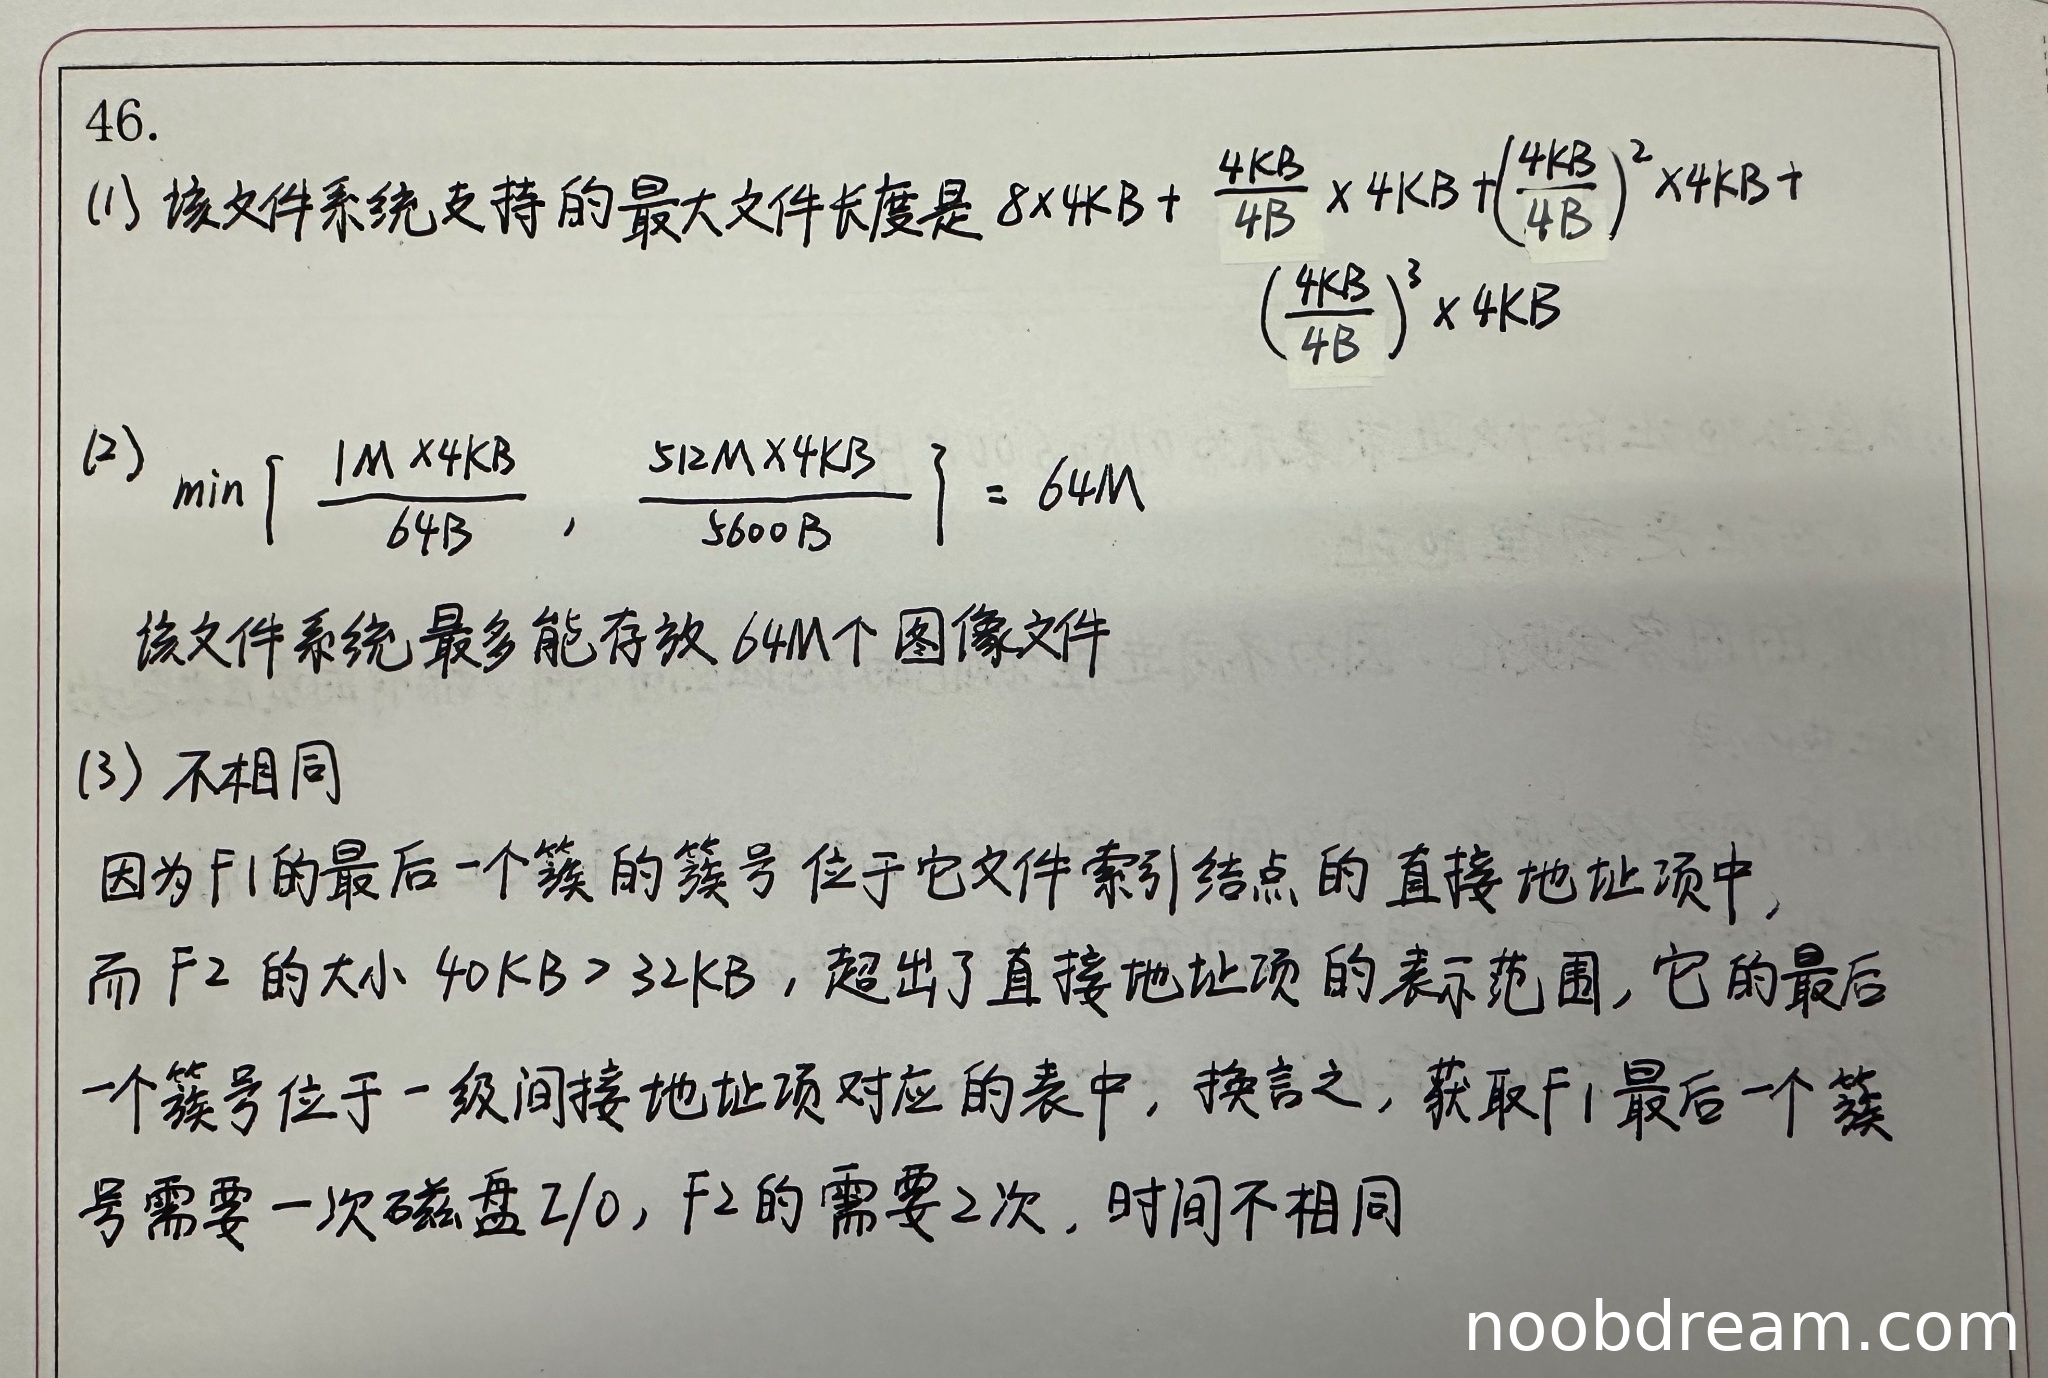 46.
(1) 该文件系统支持的最大文件长度是 8×4KB + 4KB/4B × 4KB + (4KB/4B)² ×4KB +
(4KB/4B)³ × 4KB
(2) min{ 1M×4KB/64B , 512M×4KB/5600B } = 64M
该文件系统最多能存放 64M个图像文件
(3) 不相同
因为F1的最后一个簇的簇号位于它文件索引结点的直接地址项中,
而 F2 的大小 40KB > 32KB, 超出了直接地址项的表示范围, 它的最后
一个簇号位于一级间接地址项对应的表中, 换言之, 获取F1最后一个簇
号需要一次磁盘I/O, F2的需要2次, 时间不相同
noobdream.com